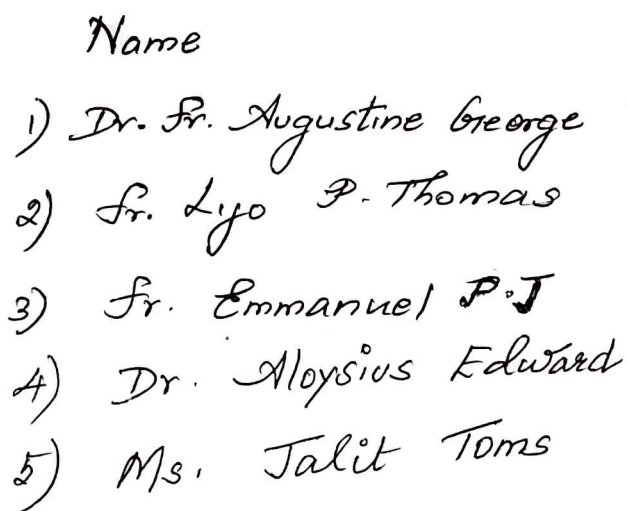 Name
1) Dr. Fr. Augustine George
2) Fr. Lyo P. Thomas
3) Fr. Emmanuel P.J
4) Dr. Aloysius Edward
5) Ms. Jalit Toms